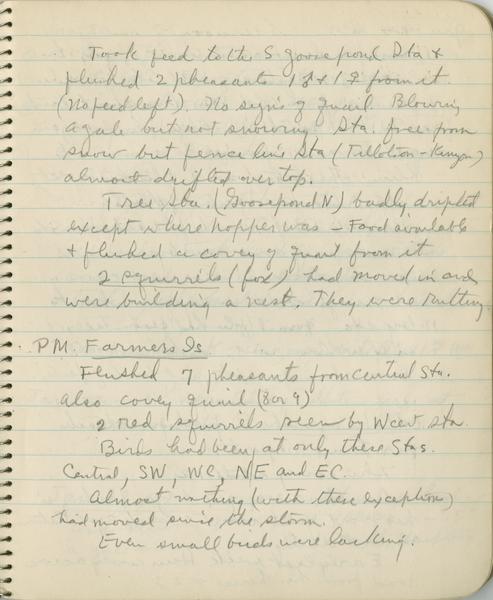 Took feed to the S goosepond Sta &
flushed 2 pheasants 1♂ & 1♀ from it
(No feed left). No signs of quail. Blowing
a gale but not snowing. Sta. free from
snow but fence line Sta (Tillotson-Kenyon)
almost drifted over top.
Tree Sta. (Goosepond N) badly drifted
except where hopper was - Food available
& flushed a covey of quail from it
2 squirrels (fox) had moved in and
were building a nest. They were rutting.
P.M. Farmers Is
Flushed 7 pheasants from Central Sta.
Also covey quail (8 or 9)
2 red squirrels seen by W cent sta
Birds had been at only these Stas.
Central, SW, WC, NE and EC.
Almost nothing (with these exception)
had moved since the storm.
Even small birds were lacking.